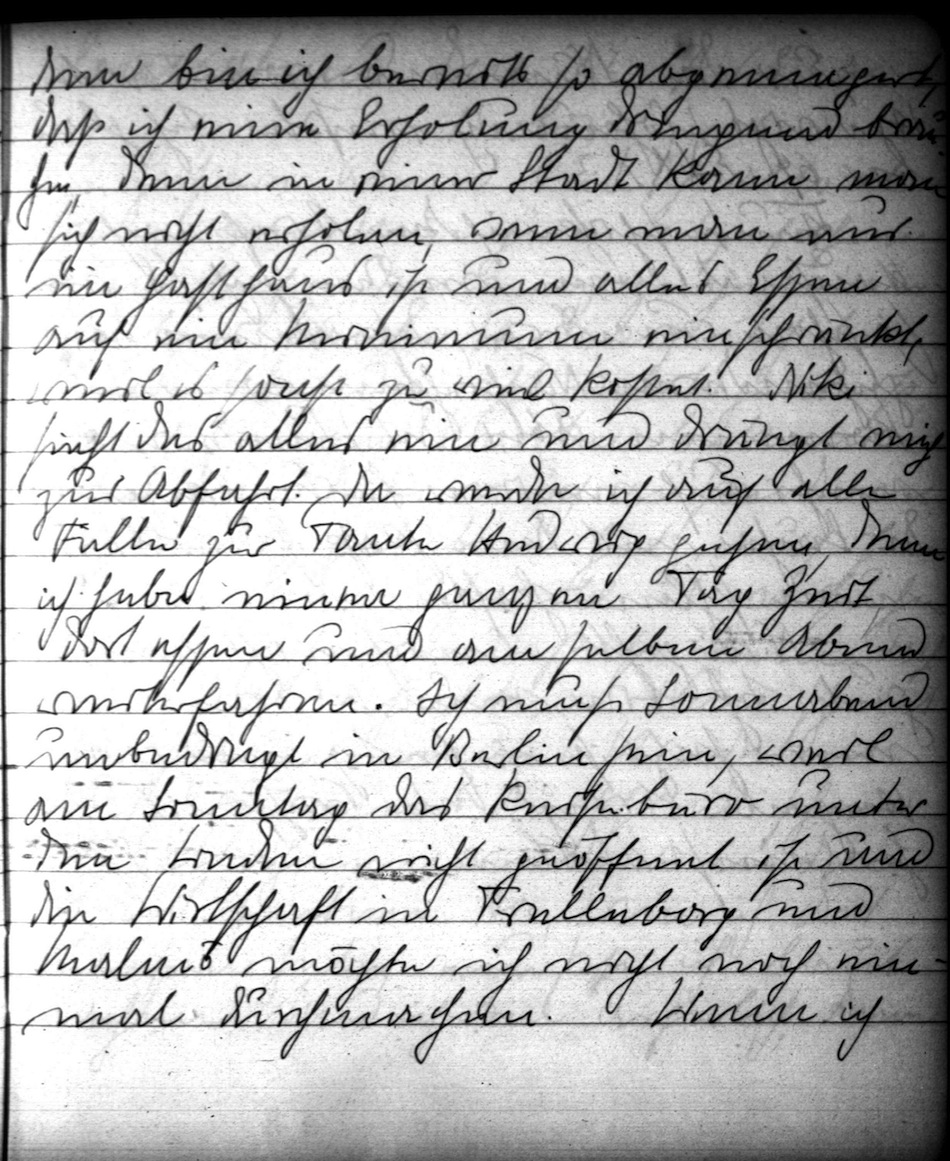 denn bin ich bereits so abgemagert,
daß ich eine Erholung dringend brau-
che denn in einer Stadt kann man
sich nicht erholen, wenn man nur
im Gasthaus ißt und alles Essen
auf ein Minimum einschränkt,
weil es sonst zu viel kostet. Niki
sieht das alles ein und drängt mich
zur Abfahrt. Da werde ich auf alle
Fälle zur Tante Hedwig gehen, denn
ich habe einen ganzen Tag Zeit,
dort essen und am selben Abend
weiterfahren. Ich muß Sonnabend
unbedingt in Berlin sein, weil
am Sonntag das Reisebüro unter
den Linden nicht geöffnet ist und
die Wirtschaft in Trelleborg und
Malmö möchte ich nicht noch ein-
mal durchmachen. Wenn ich